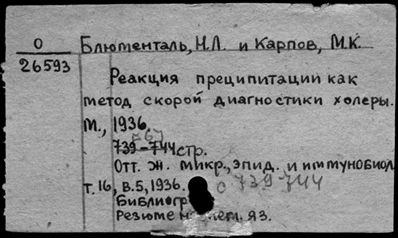 О Блюменталь, Н.Л. и Карпов, М.К.
26593
Реакция преципитации как
метод скорой диагностики холеры.
М., 1936.
739-744 стр.
Отт. ж. микр., эпид. и иммунобиол
т. 16, в. 5, 1936. с 739 744
Библиогр
Резюме яз.